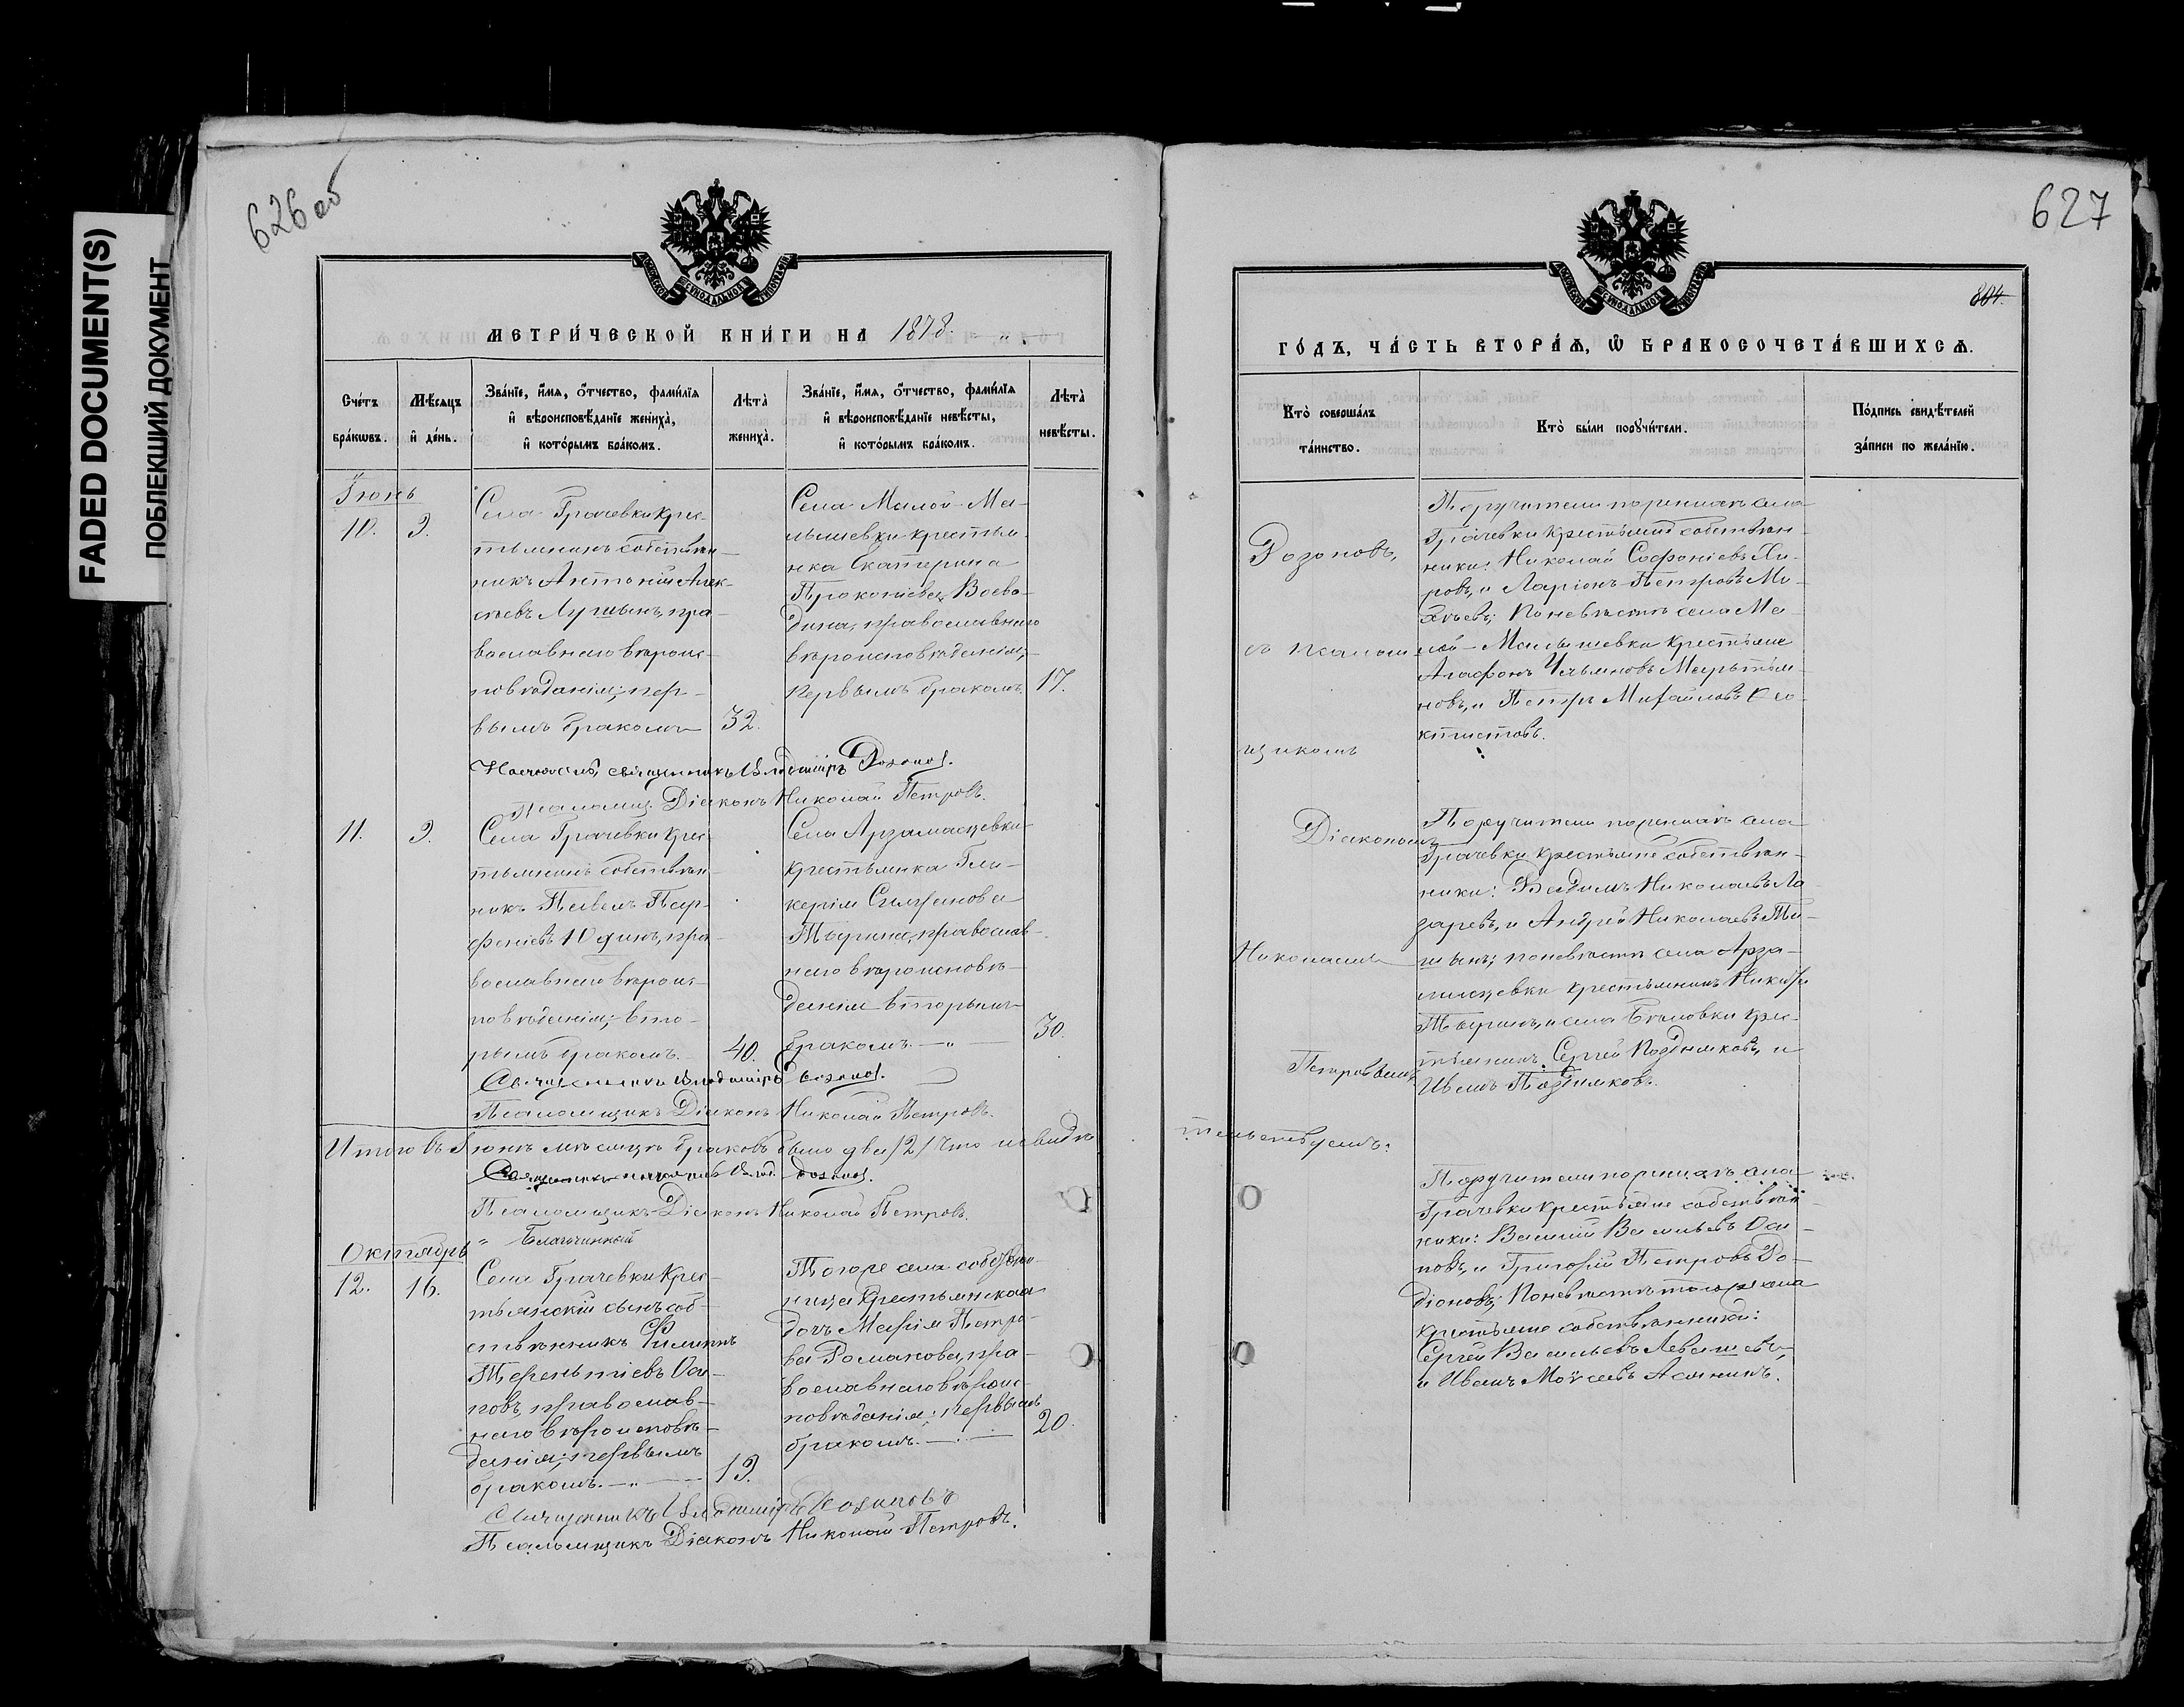 FADED DOCUMENT(S)
ПОБЛЕКШИЙ ДОКУМЕНТ
626 об
МЕТРИ́ЧЕСКОЙ КНИ́ГИ НА 1878.
Сче́тъ бра́кѡвъ.
Мѣ́сѧцъ и҆ де́нь.
Зва́нїе, и҆́мѧ, ѻ҆́тчество, фами́лїѧ и҆ вѣроисповѣ́данїе жениха̀, и҆ кото́рымъ бра́комъ.
Лѣ́та̀ жениха̀.
Зва́нїе, и҆́мѧ, ѻ҆́тчество, фами́лїѧ и҆ вѣроисповѣ́данїе невѣ́сты, и҆ кото́рымъ бра́комъ.
Лѣ́та̀ невѣ́сты.
Іюнь
10.
9.
Села Грачевки крес-
тьянинъ собствен-
никъ Антоній Алек-
сѣевъ Лушинъ, пра-
вославнаго вѣроис-
повѣданія; пер-
вымъ бракомъ
32.
Села Малой-Ма-
лышевки крестьян-
ка Екатерина
Прокопіева Воево-
дина, православнаго
вѣроисповѣданія;
первымъ бракомъ,
17.
священникъ Владиміръ Розоновъ.
Псаломщ. Діаконъ Николай Петровъ.
11.
9.
Села Грачевки крес-
тьянинъ собствен-
никъ Павелъ Пар-
феніевъ Юдинъ, пра-
вославнаго вѣроис-
повѣданія; вто-
рымъ бракомъ.
40.
Села Арзамасцевки
крестьянка Гли-
керія Силуанова
Тырина, православ-
наго вѣроисповѣ-
данія вторымъ
бракомъ. — „ —
30.
Священникъ Владиміръ Розоновъ.
Псаломщикъ Діаконъ Николай Петровъ.
Итого въ Іюнѣ мѣсяцѣ браковъ было два /2/ что и свидѣ-
Священникъ Влад. Розоновъ.
Псаломщикъ Діаконъ Николай Петровъ.
„ Благочинный
Октябрь
12.
16.
Села Грачевки крес-
тьянскій сынъ соб-
ственникъ Филиппъ
Терентіевъ Оси-
повъ, православ-
наго вѣроисповѣ-
данія; первымъ
бракомъ. — „ —
19.
Тогоже села собствен-
ница крестьянская
дочь Марія Петро-
ва Романова, пра-
вославнаго вѣроис-
повѣданія; первымъ
бракомъ. — . —
20.
Священникъ Владиміръ Розоновъ
Псаломщикъ Діаконъ Николай Петровъ.
627
804.
ГО́ДЪ, ЧА́СТЬ ВТОРА́Ѧ, Ѽ БРАКОСОЧЕТА́ВШИХСѦ.
Кто̀ соверша́лъ та́инство.
Кто̀ бы́ли порꙋчи́тели.
По́дпись свидѣ́телей за́писи по жела́нїю.
Розоновъ,
съ псалом-
щикомъ
Діакономъ
Николаемъ
Петровымъ
Поручители по женихѣ села
Грачевки крестьяне собствен-
ники: Николай Софоніевъ Ки-
ровъ, и Ларіонъ Петровъ Ми-
хѣевъ; по невѣстѣ села Ма-
лой-Малышевки крестьяне
Агафонъ Ульяновъ Мартья-
новъ, и Петръ Михайловъ Ѳео-
ктистовъ.
Поручители по женихѣ села
Грачевки крестьяне собствен-
ники: Вадимъ Николаевъ Ла-
заревъ, и Андрей Николаевъ Ти-
шинъ; по невѣстѣ села Арза-
масцевки крестьянинъ Никита
Тыринъ, и села Бѣловки крес-
тьянинъ Сергѣй Поздняковъ, и
Иванъ Поздняковъ.
тельствуемъ:
Поручители по женихѣ села
Грачевки крестьяне собствен-
ники: Василій Васильевъ Оси-
повъ, и Григорій Петровъ Ро-
діоновъ; по невѣстѣ тогоже села
крестьяне собственники:
Сергѣй Васильевъ Левашевъ,
и Иванъ Моѵсеевъ Асянинъ.